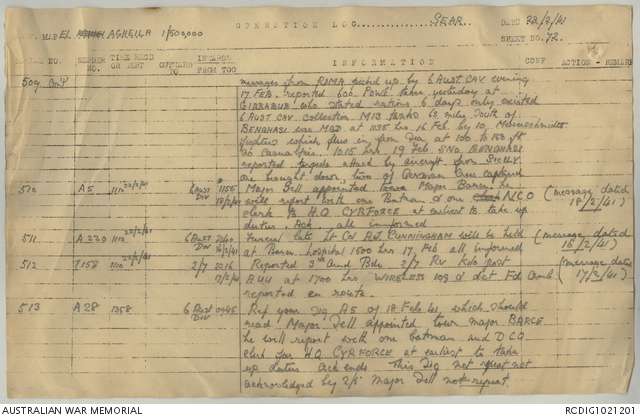 OPERATION LOG GEAR DATE 22/2/41
MAP EL AGHEILA 1/500,000 SHEET NO. 72
NO. TIME RECD OR SENT FROM TOO INFORMATION CONF ACTION - REMARKS
509 Cont messages from RAMA picked up by 6 AUST CAV evening
17 FEB. reported 600 POWs taken yesterday at
GIARABUB who stated rations 6 days only existed
6 AUST CAV collection M13 tanks 60 miles South of
BENGHASI was M.G'D at 1035 hrs 16 Feb by 10 Messerschmidts
fighters which flew in from Sea at 100 to 150 ft
no casualties. 1215 hrs 19 Feb. SNO BENGHASI
reported torpedo attack by aircraft from SICILY
one brought down, two of German crew captured
512 A5 1110 22/2/41 6 Aust Div 1155 18/2/41 Major Dell appointed Town Major Barce, he
will report with one Batman & one NCO (message dated
clerk to H.Q CYRFORCE at earliest to take up 18/2/41)
duties. Ack. all informed
511 A.220 1110 22/2/41 6 AUST DIV 16/2/41 Funeral late Lt Col H.J. CUNNINGHAM will be held (message dated
at Barce hospital 1500 hrs 17 Feb all informed 16/2/41)
512 I158 22/2/41 2/7 2016 17/2/41 Reported 3rd Armd Bde 2/7 Rlv (message dated
at 1700 hrs, WIRELESS 109 a det Fd Amb 17/2/41)
reported en route.
513 A28 1358 6 Aust Div 0945 Ref your Sig A5 of 18 Feb 41, which should
read, Major Dell appointed town major BARCE
he will report with one batman and D C O
clerk for H.Q CYRFORCE at earliest to take
up duties ack ends. This Sig not repeat not
acknowledged by 2/5 Major Dell not repeat
AUSTRALIAN WAR MEMORIAL RCDIG1021201